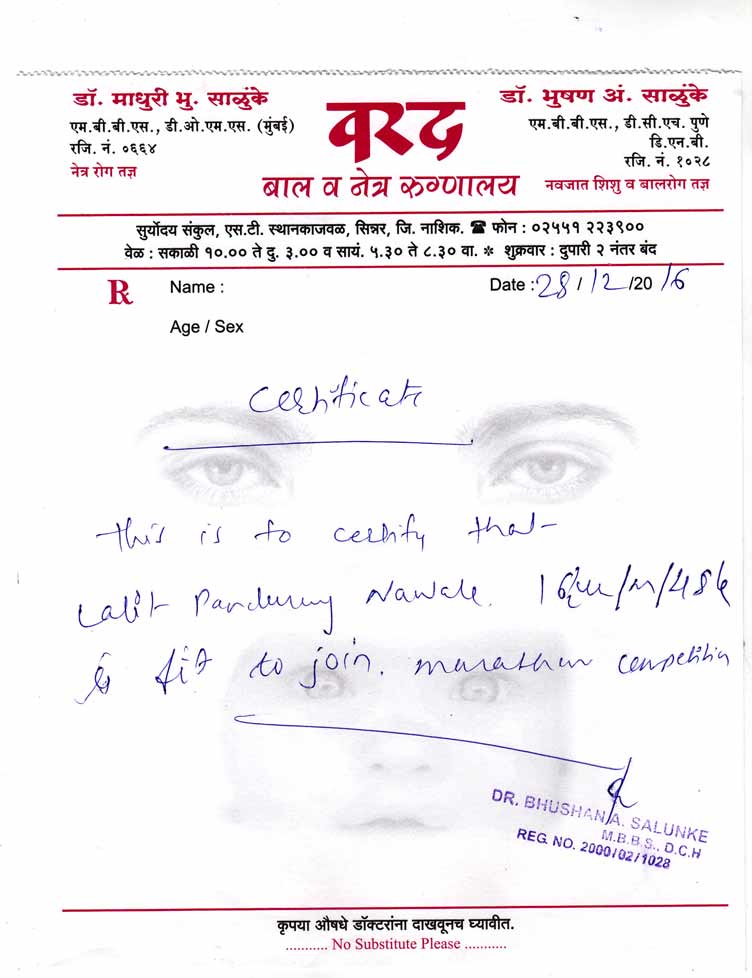 डॉ. माधुरी भु. साळुंके
एम.बी.बी.एस., डी.ओ.एम.एस. (मुंबई)
रजि. नं. ०६६४
नेत्र रोग तज्ञ
वरद
बाल व नेत्र रुग्णालय
डॉ. भुषण अं. साळुंके
एम.बी.बी.एस., डी.सी.एच. पुणे
डि.एन.बी.
रजि. नं. १०२८
नवजात शिशु व बालरोग तज्ञ
सुर्योदय संकुल, एस.टी. स्थानकाजवळ, सिन्नर, जि. नाशिक. ☎ फोन : ०२५५१ २२३९००
वेळ : सकाळी १०.०० ते दु. ३.०० व सायं. ५.३० ते ८.३० वा. * शुक्रवार : दुपारी २ नंतर बंद
Rx Name : Date : 28/12/2016
Age / Sex
Certificate
this is to certify that
Lalit Pandurang Nawale.
is fit to join. marathon competition
DR. BHUSHAN A. SALUNKE
M.B.B.S., D.C.H
REG. NO. 2000/02/1028
कृपया औषधे डॉक्टरांना दाखवूनच घ्यावीत.
........... No Substitute Please ...........